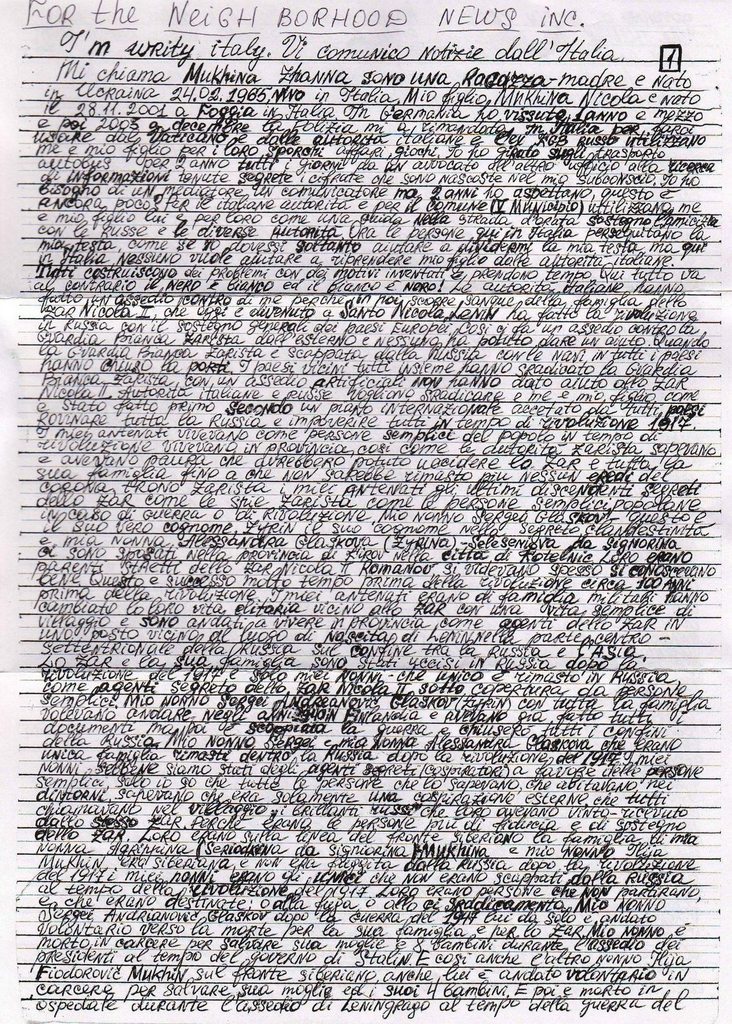 FOR the NEIGHBORHOOD NEWS INC.
I'm writy italy. Vi comunico notizie dall'Italia. 1
Mi chiama Mukhina Zhanna sono una Ragazza-madre e nato
in Ucraina 24.02.1965. Vivo in Italia. Mio figlio, Mukhina Nicola e nato
il 28.11.2001 a Foggia in Italia. In Germania ho vissuto 1 anno e mezzo
e poi 2003 a decembre la polizia mi a rimandato in Italia per farci
usare dal Vaticano e dalle autorita italiane e lei KGB russo utilizzano
me e mio figlio per i loro sporchi affari, giochi. Io ho girato sugli trasporto
autobus per anno tutti i giorni da un avvocato da altro ufficio alla ricerca
di informazioni tenute segrete i cifrate che sono nascoste nel mio subconscio. Io ho
bisogno di un mediatore, un comunicatore ma 2 anni ho aspettano questo e
ancora poco? Per le italiane autorita e per il comune (V Municipio) utilizzano me
e mio figlio lui e per loro come una guida nella strada d'orata sostegno l'amicizia
con le russe e le diverse autorita. Ora le persone qui in Italia perseguitano la
mia testa, come se io dovessi soltanto aiutare a dividermi la mia testa, ma qui
in Italia nessuno vuole aiutare a riprendere mio figlio dalle autorita italiane.
Tutti costruiscono dei problemi con dai motivi inventati e prendono tempo. Qui tutto va
al contrario il nero e bianco ed il bianco e nero! Le autorita italiane hanno
fatto un assedio contro di me perche in noi scorre sangue della famiglia dello
Zar Nicola II, che oggi e divenuto a Santo Nicola. Lenin ha fatto la rivoluzione
in Russia con il sostegno generali dai paesi Europei. Cosi si fa un assedio contro la
Guardia Bianca Zarista dall'esterno e nessuno ha potuto dare un aiuto. Quando
la Guardia Bianca Zarista e scappata dalla Russia con le navi in tutti i paesi
hanno chiuso la porta. I paesi vicini tutti insieme hanno sradicato la Guardia
Bianca Zarista, con un assedio artificiali non hanno dato aiuto allo Zar
Nicola II. Autorita italiane e russe vogliono sradicare e me e mio figlio come
e stato fatto primo secondo un piano internazionale accetato da tutti paesi
rovinare tutta la Russia e impoverire tutti in tempo di rivoluzione 1917
I miei antenati vivevano come persone semplici del popolo in tempo di
rivoluzione vivevano in provincia, cosi come le autorita zarista sapevano
e avevano paura che avrebbero potuto uccidere lo Zar e tutta la
sua famiglia fino a che non sarebbe rimasto piu nessun eredi del
cogena trono Zarista i miei antenati gli ultimi discendenti segreti
dello Zar come le spie Zarista come le persone semplici popolane
in caso di guerra o di rivoluzione. Mio nonno Sergei Glaskov questo e
il suo vero cognome, Zyrin il suo cognome nel segreto clandestinita
e mia nonna Alessandra Glaskova (Zyrina) - Seleseniova da signorina
ci sono sposati nella provincia di Kirov nella citta di Kotelnic. Loro erano
parenti stretti dello Zar Nicola II Romanov si vedevano spesso si conoscevano
bene. Questo e successo molto tempo prima della rivoluzione circa 100 anni
prima della rivoluzione. I miei antenati erano di famiglia militari hanno
cambiato lo loro vita elitaria vicino allo Zar con una vita semplice di
villaggio e sono andati a vivere in provincia, come agenti dello Zar in
uno posto vicino del luogo di nascita di Lenin, nella parte centro-
settentrionale della Russia sul confine tra la Russia e l'Asia.
Lo Zar e la sua famiglia sono stati uccisi in Russia dopo la
rivoluzione del 1917 e solo miei nonni - che unico e rimasto in Russia,
come agenti segreto dello Zar Nicola II sotto copertura da persone
semplici. Mio nonno Sergei Andreanovic Glaskov (Zyrin) con tutta la famiglia
volevano andare negli anni in Finlandia e avevano gia fatto tutti
documenti ma poi e scoppiata la guerra e chiusero tutti i confini
della Russia. Mio nonno Sergei e mia nonna Alessandra Glaskova che erano
unica famiglia rimasti dentro la Russia dopo la rivoluzione del 1917. I miei
nonni - sebbene siamo stati degli agenti segreti (cospiratori) a favore delle persone
semplici. Solo io so che tutte le persone che lo sapevano, che abitavano nei
dintorni, sapevano che era solamente una cospirazione esterne, che tutti
chiamavano il villaggio - i brillanti russi che loro avevano vinto - ricevuto
dallo stesso Zar. Perche erano le persone piu di fiducia e di sostegno
dello Zar. Loro erano sulla linea del fronte siberiano la famiglia di mia
nonna Agrippina da signorina Mukhina e mio nonno Ilja
Mukhin era siberiana e non era fuggita dalla Russia dopo la rivoluzione
del 1917 i miei nonni erano gli unici che non erano scappati dalla Russia
al tempo della rivoluzione del 1917. Loro erano persone che non partirano,
e che erano destinate; o alla fuga o allo sradicamento. Mio nonno
Sergei Andrianovic Glaskov dopo la guerra del 1947 lui da solo e andato
volontario verso la morte per la sua famiglia e per lo Zar. Mio nonno e
morto in carcere per salvare sua moglie e 8 bambini durante l'assedio dei
presidenti al tempo del governo di Stalin. E cosi anche l'altro nonno Ilja
Fiodorovic Mukhin, sul fronte siberiano, anche lui e andato volontario in
carcere per salvare sua moglie ed i suoi 4 bambini. E poi e morto in
ospedale durante l'assedio di Leningrado al tempo della guerra del